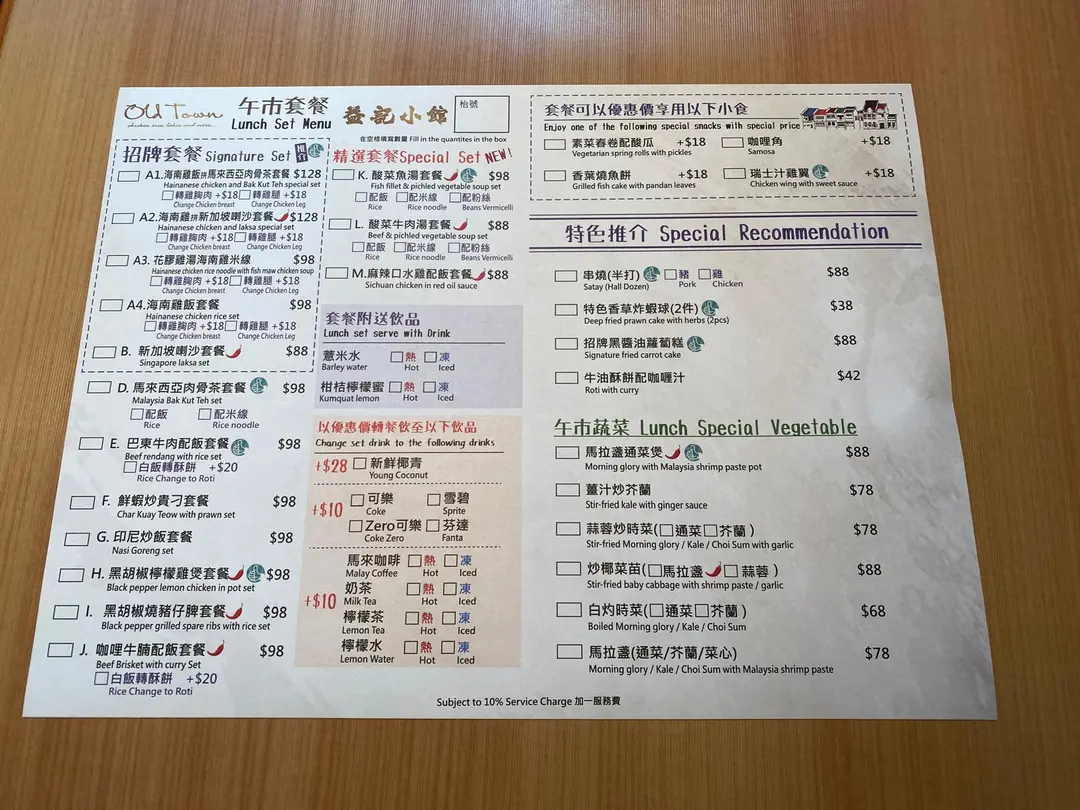 Old Town
chicken rice, laksa and more...
午市套餐
Lunch Set Menu
益記小館
枱號
在空格填寫數量 Fill in the quantites in the box
招牌套餐 Signature Set 推介
A1.海南雞飯拼馬來西亞肉骨茶套餐 $128
Hainanese chicken and Bak Kut Teh special set
轉雞胸肉 +$18 轉雞腿 +$18
Change Chicken breast Change Chicken Leg
A2.海南雞拼新加坡喇沙套餐 $128
Hainanese chicken and laksa special set
轉雞胸肉 +$18 轉雞腿 +$18
Change Chicken breast Change Chicken Leg
A3. 花膠雞湯海南雞米線 $98
Hainanese chicken rice noodle with fish maw chicken soup
轉雞胸肉 +$18 轉雞腿 +$18
Change Chicken breast Change Chicken Leg
A4.海南雞飯套餐 $98
Hainanese chicken rice set
轉雞胸肉 +$18 轉雞腿 +$18
Change Chicken breast Change Chicken Leg
B. 新加坡喇沙套餐 $88
Singapore laksa set
D. 馬來西亞肉骨茶套餐 $98
Malaysia Bak Kut Teh set
配飯 配米線
Rice Rice noodle
E. 巴東牛肉配飯套餐 $98
Beef rendang with rice set
白飯轉酥餅 +$20
Rice Change to Roti
F. 鮮蝦炒貴刁套餐 $98
Char Kuay Teow with prawn set
G. 印尼炒飯套餐 $98
Nasi Goreng set
H. 黑胡椒檸檬雞煲套餐 $98
Black pepper lemon chicken in pot set
I. 黑胡椒燒豬仔脾套餐 $98
Black pepper grilled spare ribs with rice set
J. 咖哩牛腩配飯套餐 $98
Beef Brisket with curry Set
白飯轉酥餅 +$20
Rice Change to Roti
精選套餐Special Set NEW!
K. 酸菜魚湯套餐 $98
Fish fillet & pichled vegetable soup set
配飯 配米線 配粉絲
Rice Rice noodle Beans Vermicelli
L. 酸菜牛肉湯套餐 $88
Beef & pichled vegetable soup set
配飯 配米線 配粉絲
Rice Rice noodle Beans Vermicelli
M.麻辣口水雞配飯套餐 $88
Sichuan chicken in red oil sauce
套餐附送飲品
Lunch set serve with Drink
薏米水 熱 凍
Barley water Hot Iced
柑桔檸檬蜜 熱 凍
Kumquat lemon Hot Iced
以優惠價轉餐飲至以下飲品
Change set drink to the following drinks
+$28 新鮮椰青
Young Coconut
+$10 可樂 雪碧
Coke Sprite
Zero可樂 芬達
Coke Zero Fanta
+$10
馬來咖啡 熱 凍
Malay Coffee Hot Iced
奶茶 熱 凍
Milk Tea Hot Iced
檸檬茶 熱 凍
Lemon Tea Hot Iced
檸檬水 熱 凍
Lemon Water Hot Iced
套餐可以優惠價享用以下小食
Enjoy one of the following special snacks with special price
素菜春卷配酸瓜 +$18 咖哩角 +$18
Vegetarian spring rolls with pickles Samosa
香葉燒魚餅 +$18 瑞士汁雞翼 +$18
Grilled fish cake with pandan leaves Chicken wing with sweet sauce
特色推介 Special Recommendation
串燒(半打) 豬 雞 $88
Satay (Hall Dozen) Pork Chicken
特色香草炸蝦球(2件) $38
Deep fried prawn cake with herbs (2pcs)
招牌黑醬油蘿蔔糕 $88
Signature fried carrot cake
牛油酥餅配咖喱汁 $42
Roti with curry
午市蔬菜 Lunch Special Vegetable
馬拉盞通菜煲 $88
Morning glory with Malaysia shrimp paste pot
薑汁炒芥蘭 $78
Stir-fried kale with ginger sauce
蒜蓉炒時菜(通菜 芥蘭 ) $78
Stir-fried Morning glory / Kale / Choi Sum with garlic
炒椰菜苗(馬拉盞 蒜蓉 ) $88
Stir-fried baby cabbage with shrimp paste / garlic
白灼時菜(通菜 芥蘭 ) $68
Boiled Morning glory / Kale / Choi Sum
馬拉盞(通菜/芥蘭/菜心) $78
Morning glory / Kale / Choi Sum with Malaysia shrimp paste
Subject to 10% Service Charge 加一服務費